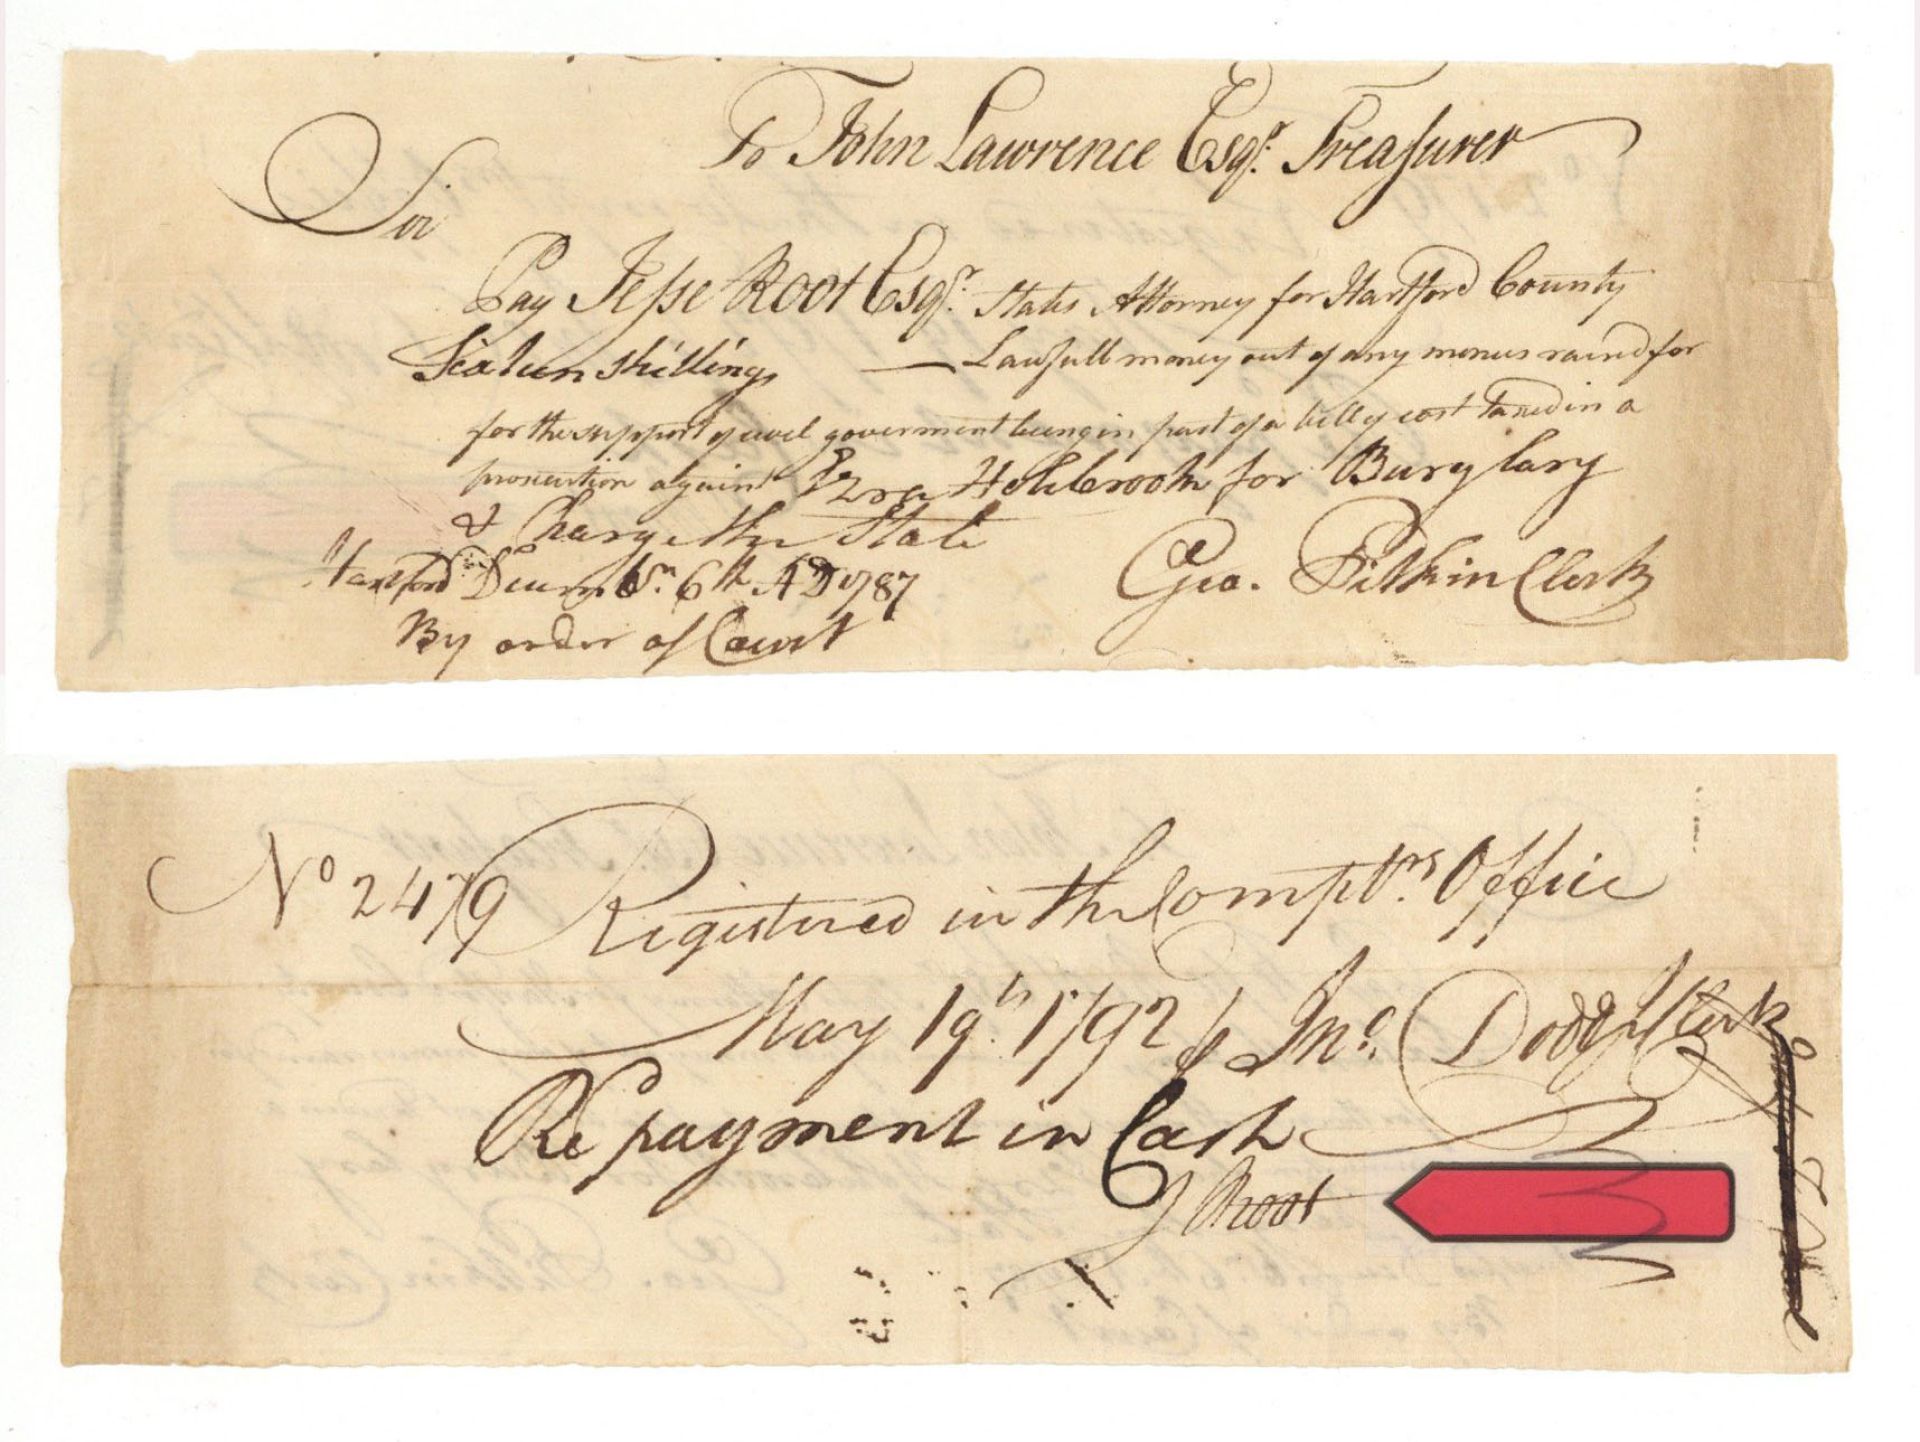 To John Lawrence Esqr. Treasurer
Sir
Pay Jesse Root Esqr. States Attorney for Hartford County
Sixteen shillings — Lawfull money out of any monies raised for
for the support of civel goverment being in part of a bill of cost taxed in a
prosecution against Ezra Holebrook for Burglary
& Charge the State
Hartford Decembr. 6th AD 1787
By order of Court
Geo. Pitkin Clerk
No 2479 Registered in the Comptrs. Office
May 19th. 1792 Jno. Dodd Clerk
Re payment in Cash
J Root